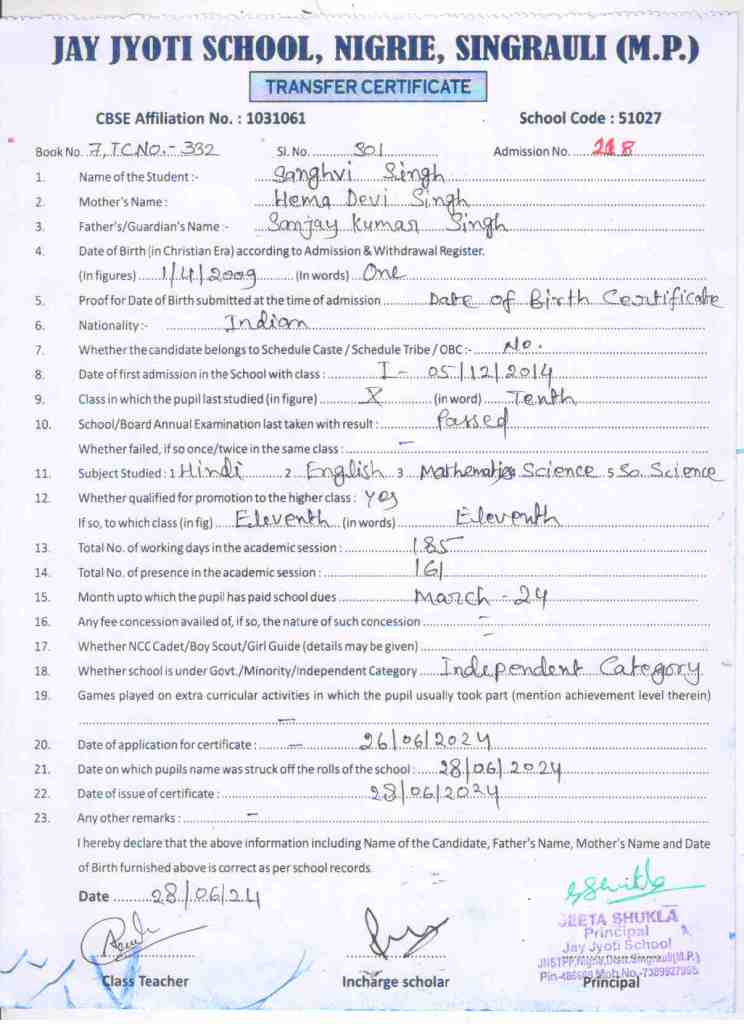 JAY JYOTI SCHOOL, NIGRIE, SINGRAULI (M.P.)
TRANSFER CERTIFICATE
CBSE Affiliation No. : 1031061 School Code : 51027
Book No. 7, T.C.NO.- 332 Sl. No. 301 Admission No. 218
1. Name of the Student :- Sanghvi Singh
2. Mother's Name : Hema Devi Singh
3. Father's/Guardian's Name :- Sanjay Kumar Singh
4. Date of Birth (in Christian Era) according to Admission & Withdrawal Register.
(In figures) 1/4/2009 (In words) One
5. Proof for Date of Birth submitted at the time of admission Date of Birth Certificate
6. Nationality :- Indian
7. Whether the candidate belongs to Schedule Caste / Schedule Tribe / OBC :- No.
8. Date of first admission in the School with class : I - 05/12/2014
9. Class in which the pupil last studied (in figure) X (in word) Tenth
10. School/Board Annual Examination last taken with result : Passed
Whether failed, if so once/twice in the same class : –
11. Subject Studied : 1 Hindi 2 English 3 Mathematics Science 5 So. Science
12. Whether qualified for promotion to the higher class : Yes
If so, to which class (in fig) Eleventh (in words) Eleventh
13. Total No. of working days in the academic session : 185
14. Total No. of presence in the academic session : 161
15. Month upto which the pupil has paid school dues March - 24
16. Any fee concession availed of, if so, the nature of such concession –
17. Whether NCC Cadet/Boy Scout/Girl Guide (details may be given) –
18. Whether school is under Govt./Minority/Independent Category Independent Category
19. Games played on extra curricular activities in which the pupil usually took part (mention achievement level therein)
–
20. Date of application for certificate : – 26/06/2024
21. Date on which pupils name was struck off the rolls of the school : 28/06/2024
22. Date of issue of certificate : 28/06/2024
23. Any other remarks : –
I hereby declare that the above information including Name of the Candidate, Father's Name, Mother's Name and Date
of Birth furnished above is correct as per school records.
Date 28/06/24
GEETA SHUKLA
Principal
Jay Jyoti School
Class Teacher Incharge scholar Principal